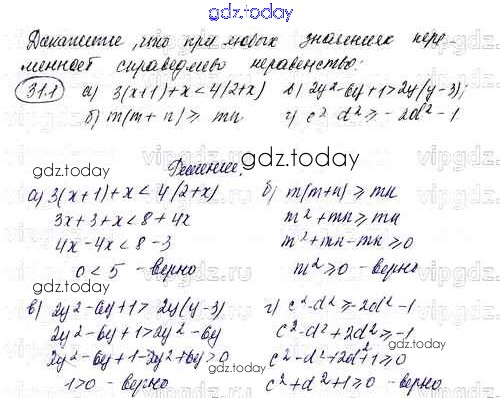 gdz.today
Докажите, что при любых значениях пере-
менной справедливо неравенство:
31.1 а) 3(x+1)+x<4(2+x) в) 2y²-6y+1>2y(y-3);
б) m(m+n)≥ mn г) c²-d²≥-2d²-1
gdz.today
gdz.today
Решение.
а) 3(x+1)+x<4(2+x)
3x+3+x<8+4x
4x-4x<8-3
0<5 - верно
б) m(m+n)≥mn
m²+mn≥mn
m²+mn-mn≥0
m²≥0 - верно
в) 2y²-6y+1>2y(y-3)
2y²-6y+1>2y²-6y
2y²-6y+1-2y²+6y>0
1>0 - верно
г) c²-d²≥-2d²-1
c²-d²+2d²≥-1
c²-d²+2d²+1≥0
c²+d²+1≥0 - верно
gdz.today
gdz.today